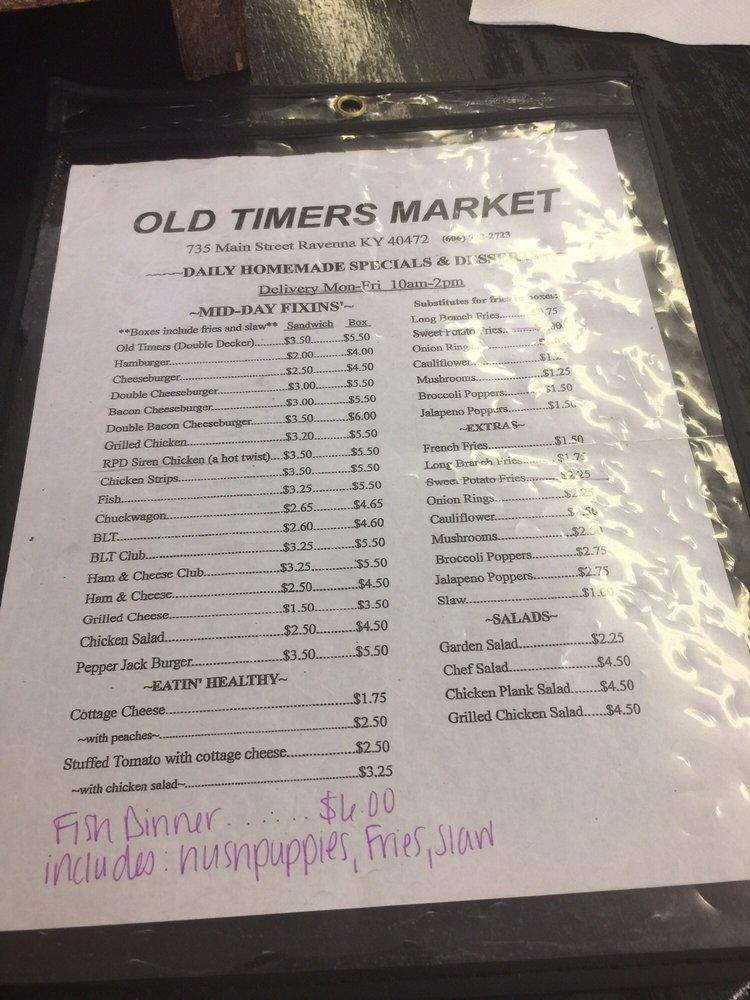 OLD TIMERS MARKET
735 Main Street Ravenna KY 40472 (606)
~~~~DAILY HOMEMADE SPECIALS &
Delivery Mon-Fri 10am-2pm
~MID-DAY FIXINS'~
**Boxes include fries and slaw** Sandwich Box
Old Timers (Double Decker)....$3.50..........$5.50
Hamburger....$2.00..........$4.00
Cheeseburger....$2.50..........$4.50
Double Cheeseburger....$3.00..........$5.50
Bacon Cheeseburger....$3.00..........$5.50
Double Bacon Cheeseburger....$3.50..........$6.00
Grilled Chicken....$3.20..........$5.50
RPD Siren Chicken (a hot twist)....$3.50..........$5.50
Chicken Strips....$3.50..........$5.50
Fish....$3.25..........$5.50
Chuckwagon....$2.65..........$4.65
BLT....$2.60..........$4.60
BLT Club....$3.25..........$5.50
Ham & Cheese Club....$3.25..........$5.50
Ham & Cheese....$2.50..........$4.50
Grilled Cheese....$1.50..........$3.50
Chicken Salad....$2.50..........$4.50
Pepper Jack Burger....$3.50..........$5.50
~EATIN' HEALTHY~
Cottage Cheese....$1.75
~with peaches~....$2.50
Stuffed Tomato with cottage cheese....$2.50
~with chicken salad~....$3.25
Substitutes for fries in boxes:
Long Branch Fries....
Sweet Potato Fries....
Onion Rings
Cauliflower....
Mushrooms....$1.25
Broccoli Poppers....$1.50
Jalapeno Poppers....$1.50
~EXTRAS~
French Fries....$1.50
Long Branch Fries....$1.75
Sweet Potato Fries....$2.25
Onion Rings....$2.25
Cauliflower....
Mushrooms....
Broccoli Poppers....$2.75
Jalapeno Poppers....$2.75
Slaw....$1.00
~SALADS~
Garden Salad....$2.25
Chef Salad....$4.50
Chicken Plank Salad....$4.50
Grilled Chicken Salad....$4.50
Fish Dinner.......$6.00
includes: hushpuppies, Fries, slaw